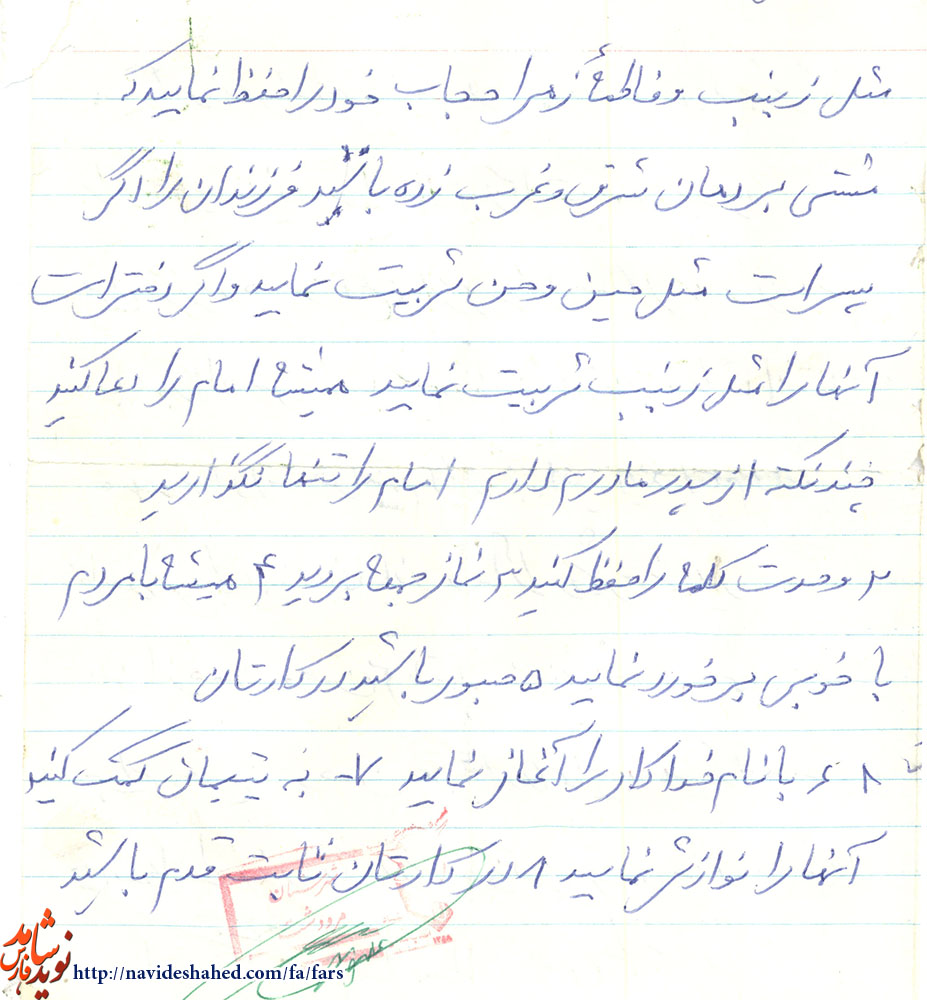 مثل زینب و فاطمهٔ زهرا حجاب خود را حفظ نمایید که
مشتی بر دهان شرق و غرب زده باشید فرزندان را اگر
پسر است مثل حسین و حسن تربیت نمایید و اگر دختر است
آنها را مثل زینب تربیت نمایید همیشه امام را دعا کنید
چند نکته از پدر مادرم دارم امام را تنها نگذارید
۲ وحدت کلمه را حفظ کنید ۳ نماز جمعه بروید ۴ همیشه با مردم
با خوبی برخورد نمایید ۵ صبور باشید در کارتان
۶ با نام خدا کار را آغاز نمایید ۷- به یتیمان کمک کنید
آنها را نوازش نمایید ۸ در کارتان ثابت قدم باشید
شهرستان
مرودشت
۱۳۵۸
نوید شاهد
فارس
http://navideshahed.com/fa/fars